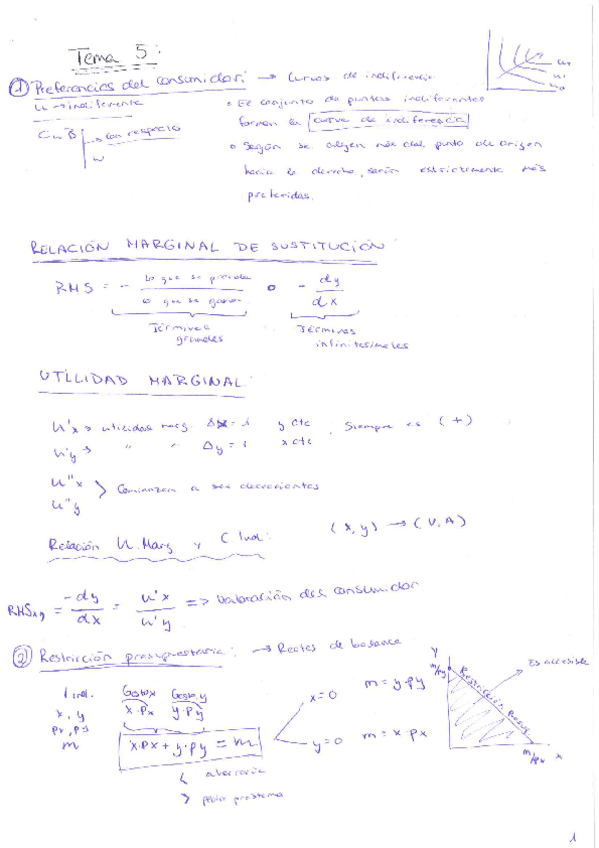 Tema 5:
① Preferencias del consumidor: → Curvas de indiferencia
u → indiferente
• El conjunto de puntos indiferentes
forman la curva de indiferencia
C u B → con respecto
w
• Según se alejen más del punto de origen
hacia la derecha, serán estrictamente más
preferidas.
RELACIÓN MARGINAL DE SUSTITUCIÓN:
RMS = - lo que se pierde / lo que se gana o - dy/dx
Términos grandes
Términos infinitesimales
UTILIDAD MARGINAL:
u'x → utilidad marg. Δx = 1 y cte. Siempre es (+)
u'y → " " Δy = 1 x cte
u''x
u''y > Comienzan a ser decrecientes
Relación U. Marg y C Ind: (x, y) → (V, A)
RMSxy = -dy/dx = u'x/u'y => Valoración del consumidor
② Restricción presupuestaria: → Rectas de balance
1 ind. Gasto x Gasto y
x, y x·px y·py
px, py
m
x·px + y·py = m
x=0 m = y·py
y=0 m = x·px
< ahorraría
> pedir préstamo
y
m/py
Es accesible
m/px
x
1